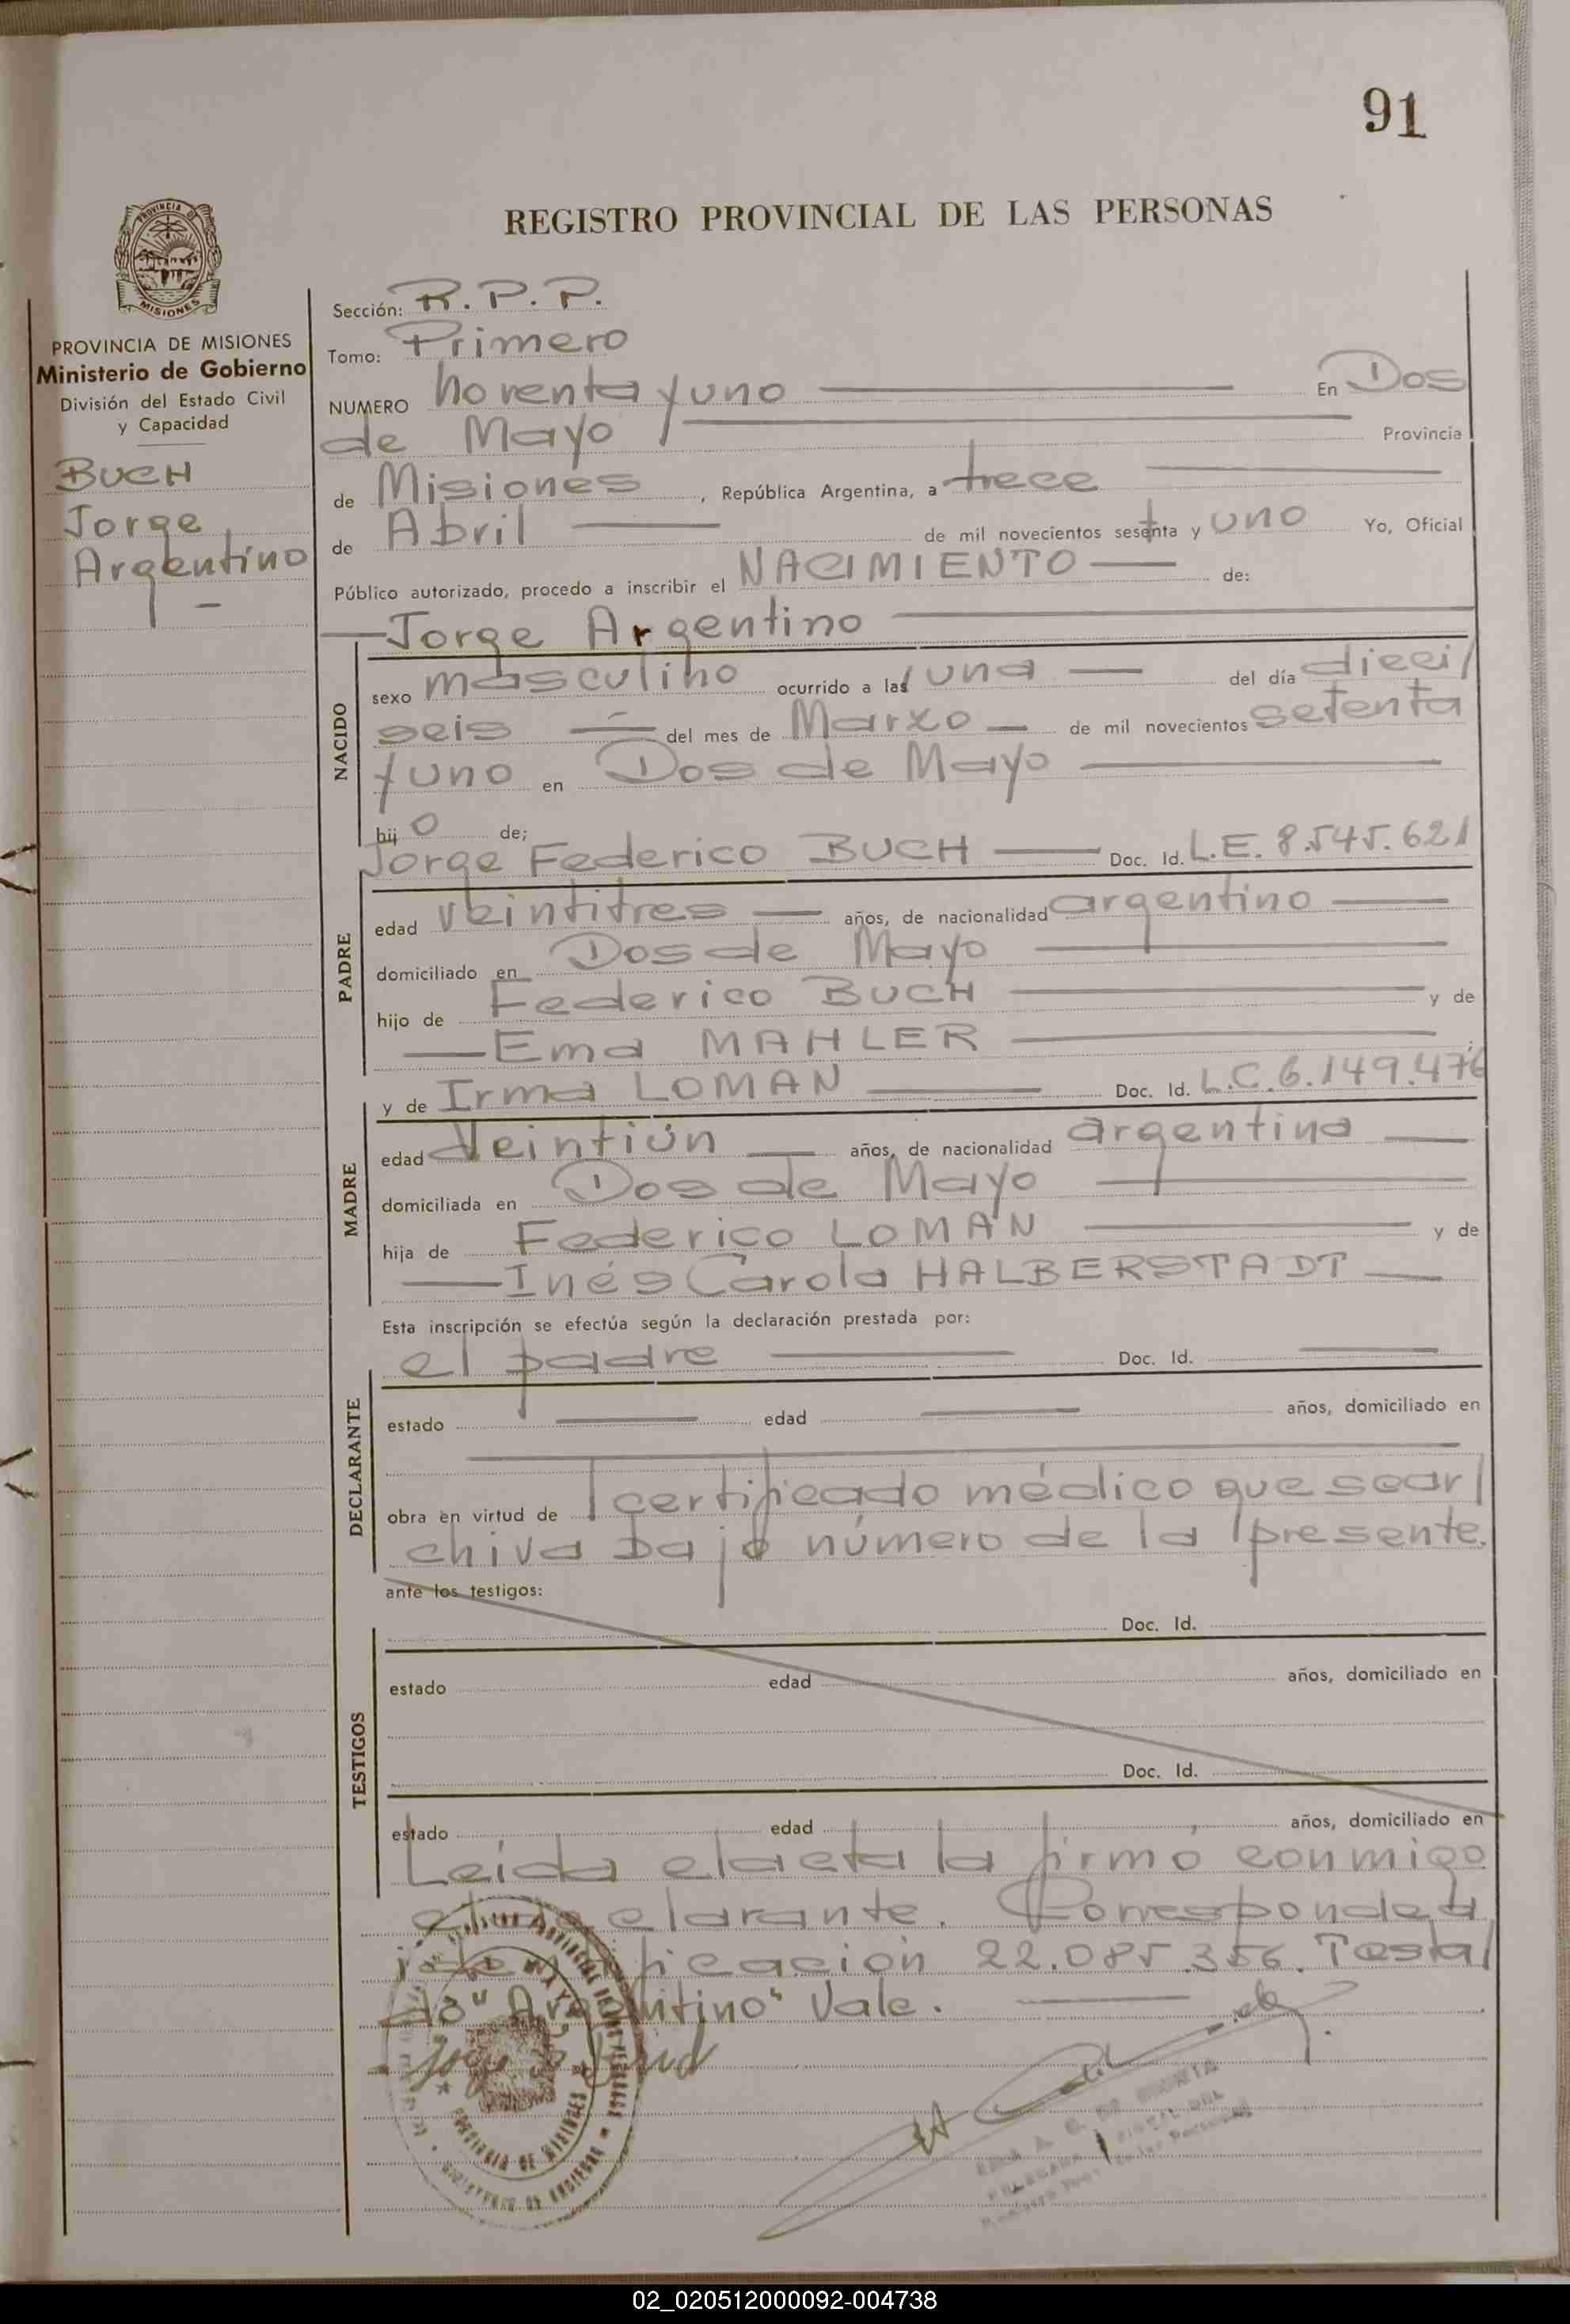 91
REGISTRO PROVINCIAL DE LAS PERSONAS
PROVINCIA DE
MISIONES
PROVINCIA DE MISIONES
Ministerio de Gobierno
División del Estado Civil
y Capacidad
BUCH
Jorge
Argentino
Sección: R.P.P.
Tomo: Primero
NUMERO noventa y uno En Dos
de Mayo Provincia
de Misiones, República Argentina, a trece
de Abril de mil novecientos sesenta y uno Yo, Oficial
Público autorizado, procedo a inscribir el NACIMIENTO de:
Jorge Argentino
NACIDO
sexo masculino ocurrido a las una del día dieci/
seis del mes de Marzo de mil novecientos setenta
y uno en Dos de Mayo
hijo de;
Jorge Federico BUCH Doc. Id. L.E. 8.545.621
PADRE
edad veintitres años, de nacionalidad argentino
domiciliado en Dos de Mayo
hijo de Federico BUCH y de
Ema MAHLER
y de Irma LOMAN Doc. Id. L.C. 6.149.476
MADRE
edad veintiún años, de nacionalidad argentina
domiciliada en Dos de Mayo
hija de Federico LOMAN y de
Inés Carola HALBERSTADT
Esta inscripción se efectúa según la declaración prestada por:
el padre Doc. Id.
DECLARANTE
estado edad años, domiciliado en
obra en virtud de certificado médico que sear/
chiva bajo número de la presente.
ante los testigos:
Doc. Id.
TESTIGOS
estado edad años, domiciliado en
Doc. Id.
estado edad años, domiciliado en
Leída elacta la firmó conmigo
eldeclarante. Corresponde a
identificación 22.085.356. Testa/
do "Argentino" Vale.
PROVINCIA DE MISIONES
02_020512000092-004738